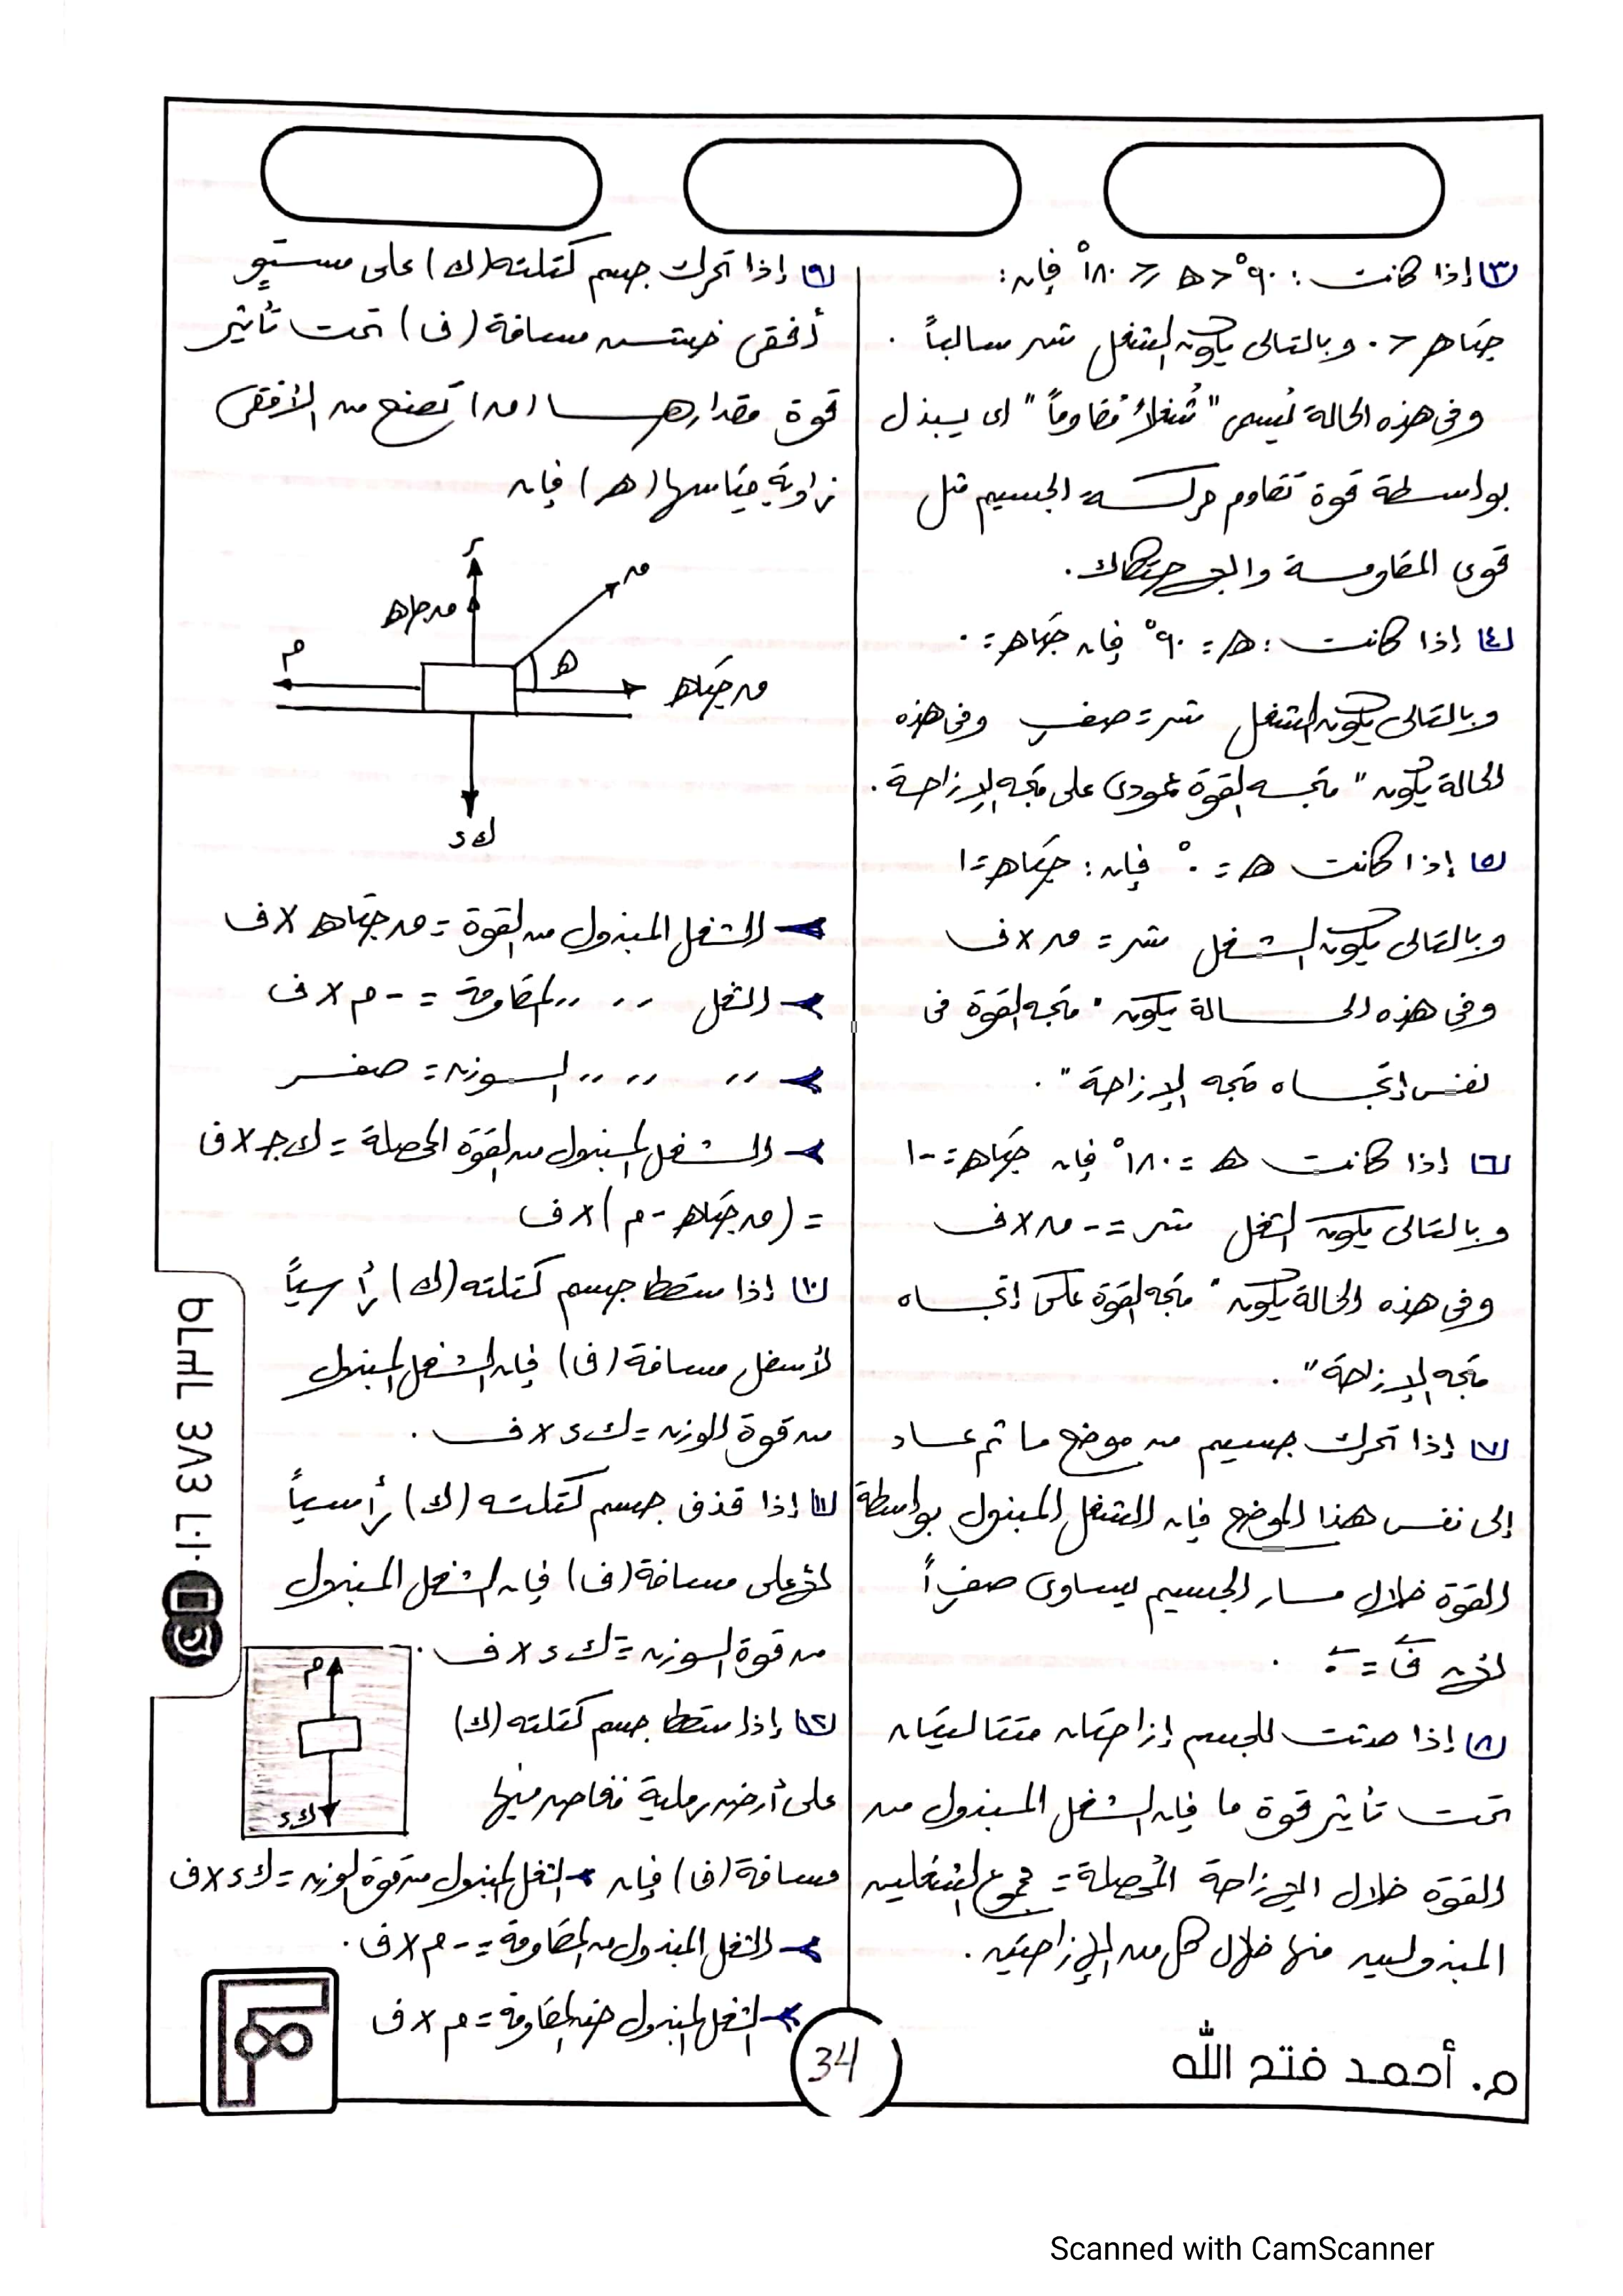 (٣) إذا كانت : ٩٠° < هـ ≤ ١٨٠° فإن :
جتاهـ < ٠ وبالتالى يكون الشغل شـ سالباً .
وفى هذه الحالة يُسمى " شغلاً مُقاوماً " اى يبذل
بواسطة قوة تقاوم حركة الجسيم مثل
قوى المقاومة والاحتكاك .
(٤) إذا كانت : هـ = ٩٠° فإن جتاهـ = ٠
وبالتالى يكون الشغل شـ = صفر وفى هذه
الحالة يكون " متجه القوة عمودى على متجه الإزاحة .
(٥) إذا كانت هـ = ٠° فإن : جتاهـ = ١
وبالتالى يكون الشغل شـ = ق × ف
وفى هذه الحالة يكون " متجه القوة فى
نفس إتجاه متجه الإزاحة " .
(٦) إذا كانت هـ = ١٨٠° فإن جتاهـ = -١
وبالتالى يكون الشغل شـ = - ق × ف
وفى هذه الحالة يكون " متجه القوة عكس إتجاه
متجه الإزاحة " .
(٧) إذا تحرك جسيم من موضع ما ثم عاد
إلى نفس هذا الموضع فإن الشغل المبذول بواسطة
القوة خلال مسار الجسيم يساوى صفراً
لأن ف = ٠ .
(٨) إذا حدثت للجسم إزاحتان متتاليتان
تحت تأثير قوة ما فإن الشغل المبذول من
القوة خلال الإزاحة المُحصلة = مجموع الشغلين
المبذولين منها خلال كل من الإزاحتين .
(٩) إذا تحرك جسم كتلته (ك) على مستوٍ
أفقى خشن مسافة (ف) تحت تأثير
قوة مقدارها (ق) تصنع مع الأفقى
زاوية قياسها (هـ) فإن
ر
ق جاهـ
ق
م
هـ
ق جتاهـ
ك د
الشغل المبذول من القوة = ق جتاهـ × ف
الشغل ,, ,, المقاومة = - م × ف
,, ,, ,, الوزن = صفر
الشغل المبذول من القوة المحصلة = ك جـ × ف
= (ق جتاهـ - م) × ف
(١٠) إذا سقط جسم كتلته (ك) رأسياً
لأسفل مسافة (ف) فإن الشغل المبذول
من قوة الوزن = ك د × ف .
(١١) إذا قذف جسم كتلته (ك) رأسياً
لأعلى مسافة (ف) فإن الشغل المبذول
من قوة الوزن = - ك د × ف .
(١٢) إذا سقط جسم كتلته (ك)
على أرض رملية فغاص فيها
مسافة (ف) فإن الشغل المبذول من قوة الوزن = ك د × ف
الشغل المبذول من المقاومة = - م × ف .
الشغل المبذول ضد المقاومة = م × ف
م
ك د
34
م. أحمد فتح الله
Scanned with CamScanner